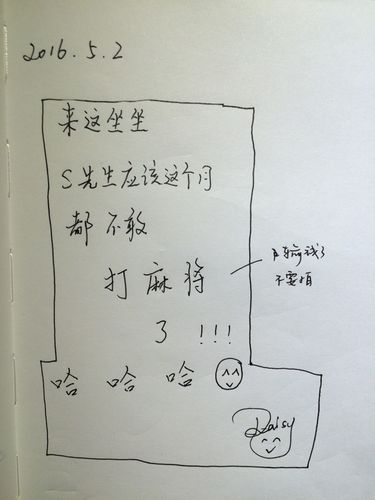 2016.5.2
来这坐坐
S先生应该这个月
都不敢
打麻将
输钱了
不要怕
了!!!
哈 哈 哈
Daisy